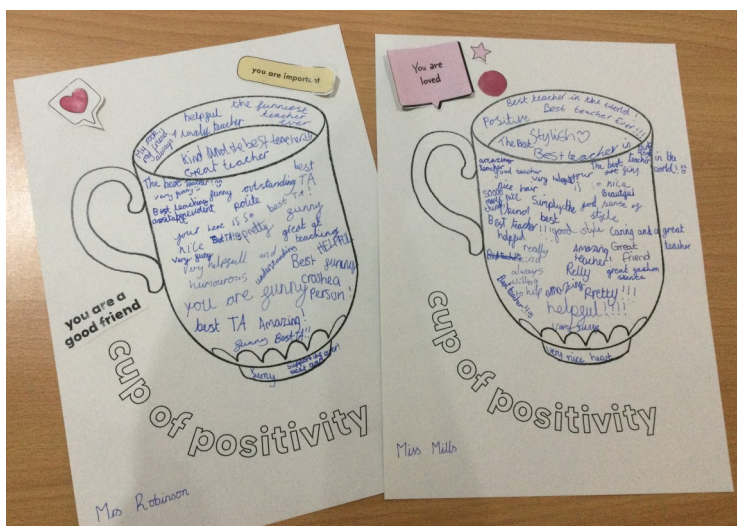 you are important
helpful the funniest
teacher
ever
lovely teacher
Kind and the best teacher
Great teacher
The best teacher
best
TA
very funny
outstanding
Best teaching
assistant
polite
best TA!
your hair is so
nice
pretty
funny
great at
teaching
very funy
very helpfull
and
understanding
HELPFUL
humourous
Best funny
you are funny
person!
best TA Amazing!
funny Best TA!!
funny
you are a
good friend
cup of positivity
Mrs Robinson
You are
loved
Best teacher in the world!
Positive Best teacher Ever!!!!
Stylish
The Best
Best teacher in
the world!
amazing
teacher
good teacher
The best teacher
very helpful
nice hair
so nice
Beautiful
Simply the
best
good sense of
style.
Kind
Best teacher!!!
good style
Caring and a great
teacher
helpful
really
kind
Amazing
teacher!
Great
friend
always
willing
to help
great fashon
amazing
Pretty!!!
helpful!!!!
very funny
very nice heart
cup of positivity
Miss Mills